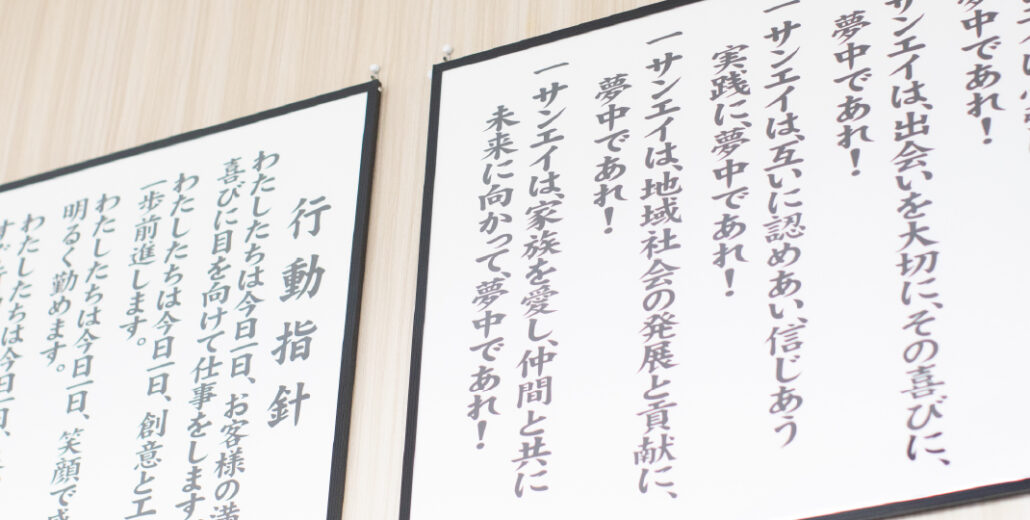 夢中であれ！
サンエイは、出会いを大切に、その喜びに、
夢中であれ！
一サンエイは、互いに認めあい、信じあう
実践に、夢中であれ！
一サンエイは、地域社会の発展と貢献に、
夢中であれ！
一サンエイは、家族を愛し、仲間と共に
未来に向かって、夢中であれ！
行動指針
わたしたちは今日一日、お客様の満
喜びに目を向けて仕事をします
わたしたちは今日一日、創意と工
一歩前進します。
わたしたちは今日一日、笑顔で
明るく勤めます。
わたしたちは今日一日、